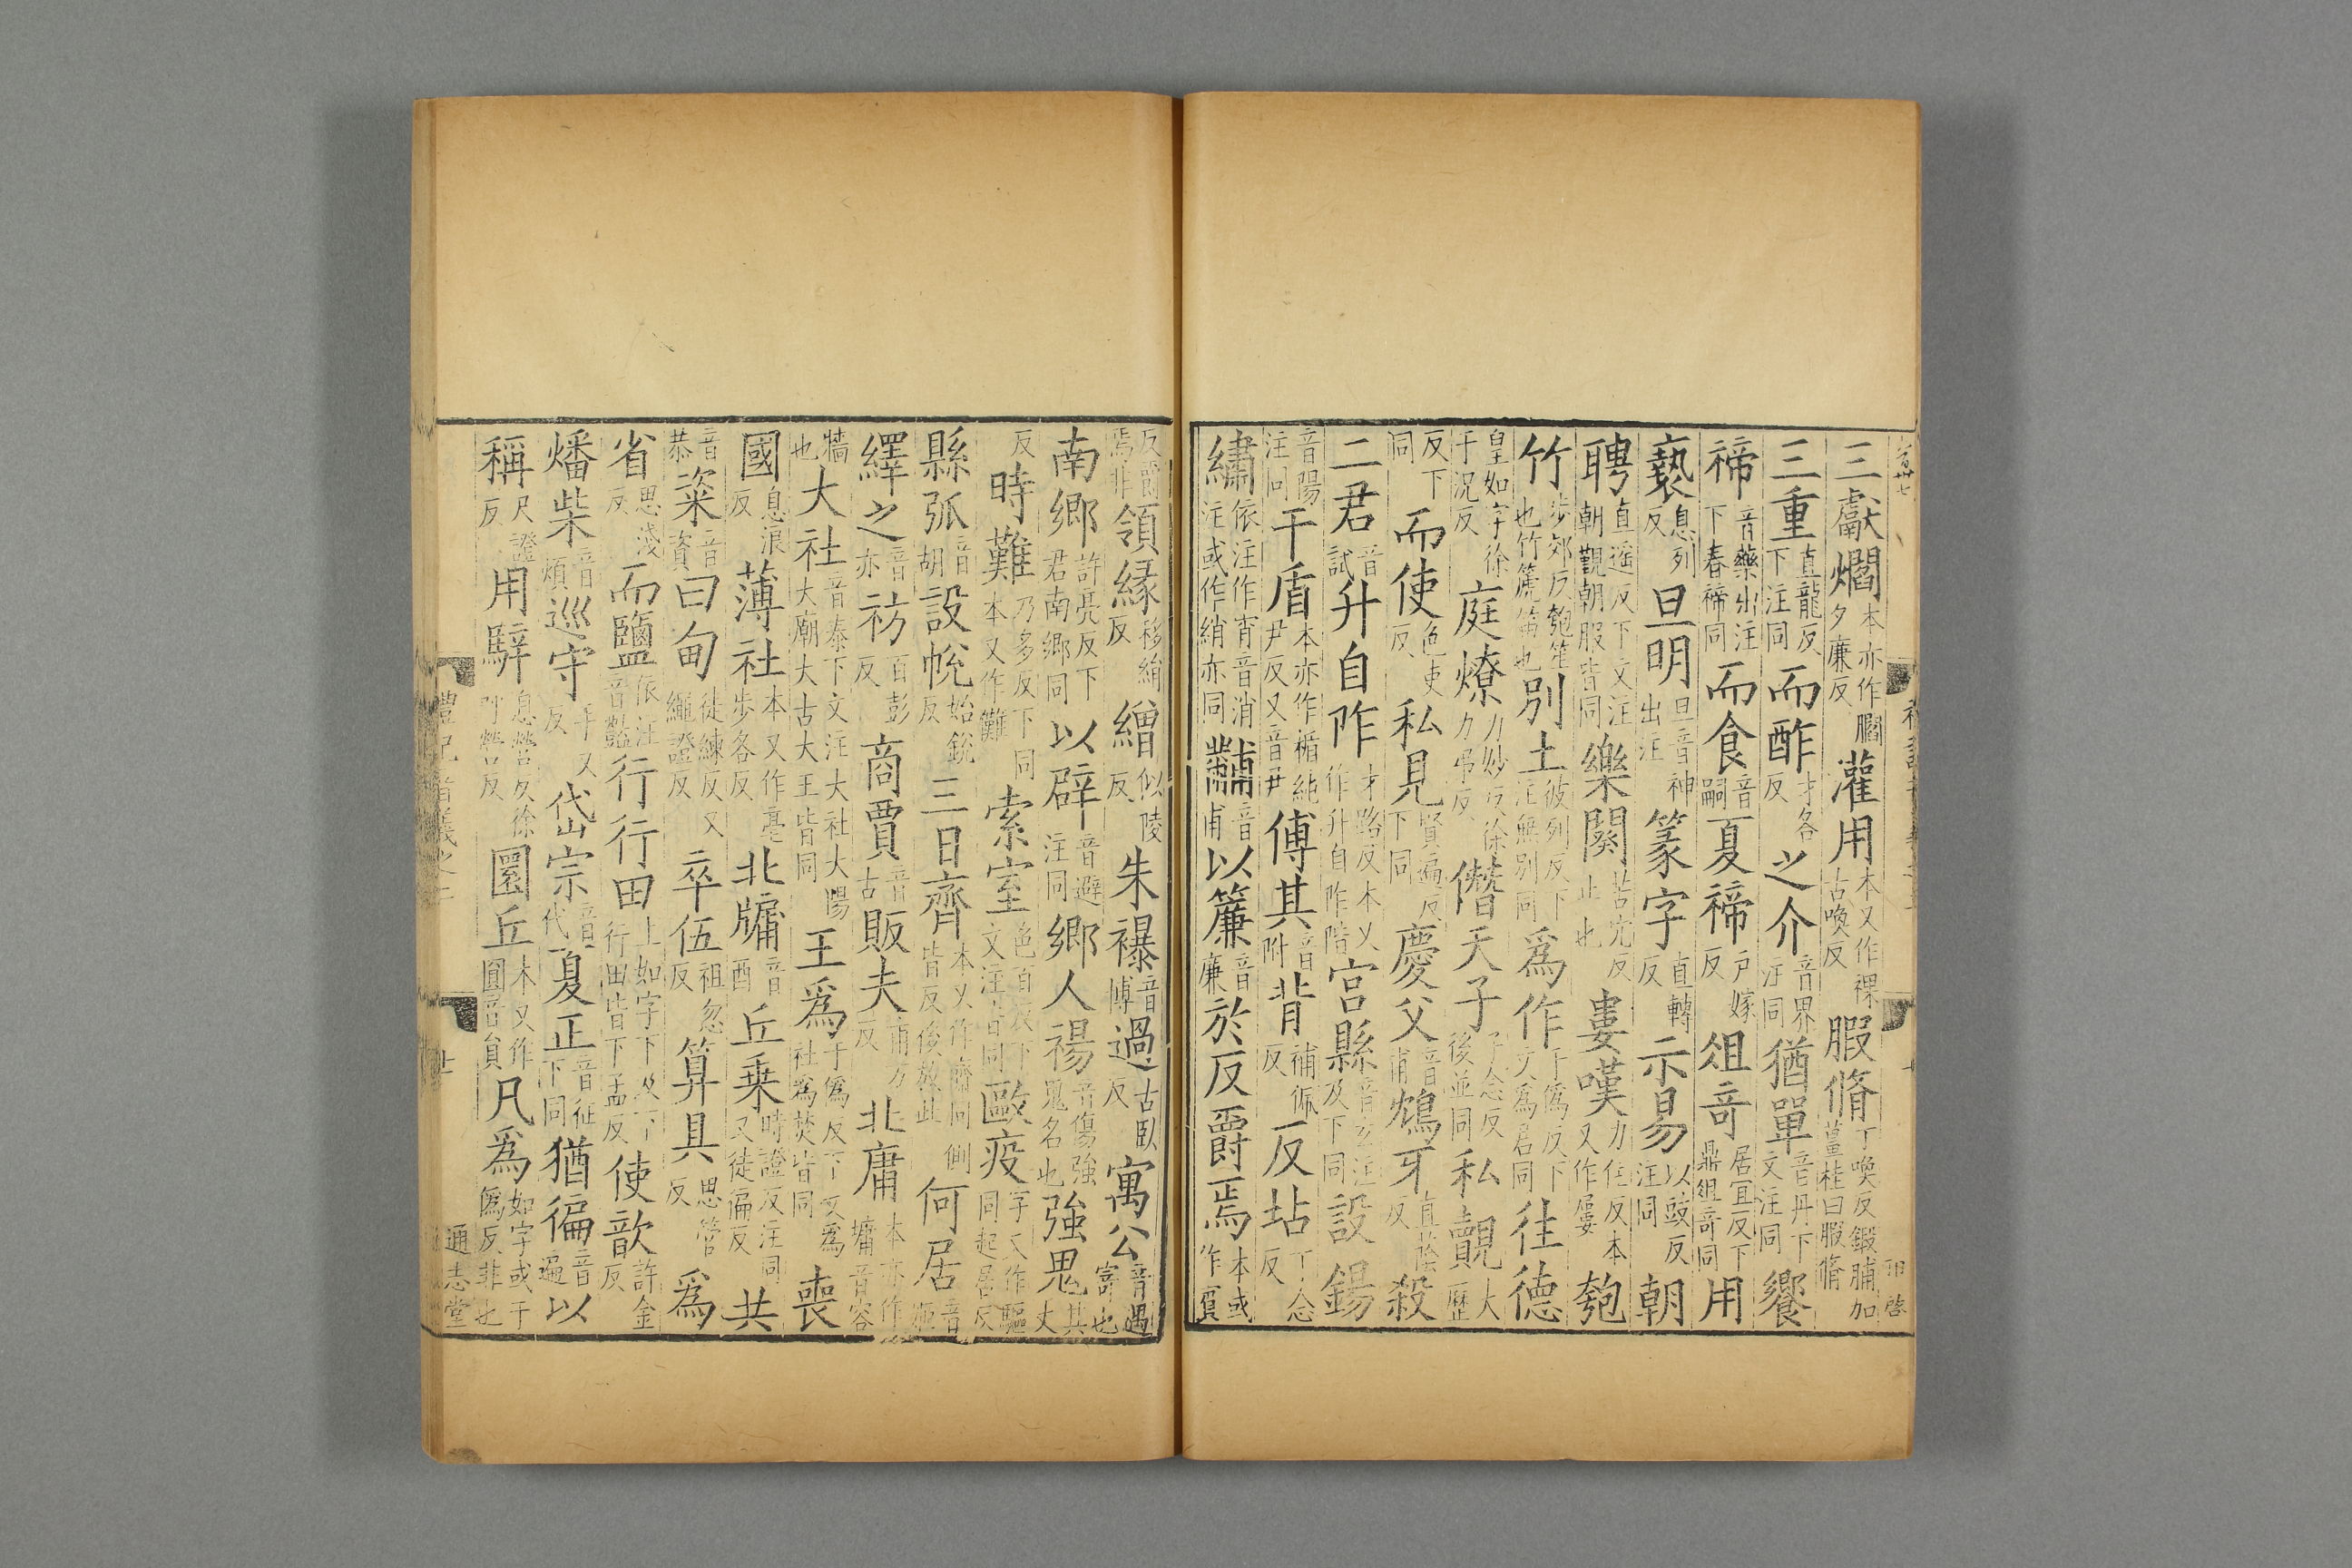 三獻爓本亦作膶夕廉反灌用本又作祼古喚反腶脩丁喚反鍛脯加薑桂曰腶脩
三重直龍反下注同而酢才各反之介音界注同猶單音丹下文注同饗
禘音藥出注下春禘同而食音嗣夏禘戶嫁反俎奇居宜反下鼎俎奇同用
褻息列反旦明旦音神出注篆字直轉反示易以豉反注同朝
聘直遥反下文注朝覲朝服皆同樂闋苦穴反止也婁嘆力住反本又作屢匏
竹步郊反匏笙也竹篪笛也別土彼列反下注無別同爲作于僞反下文爲君同往德
皇如字徐于況反庭燎力妙反徐力弔反僭天子子念反後並同私覿大歷
反下同而使色吏反私見賢遍反下同慶父音甫鴆牙直蔭反殺
二君音試升自阼才路反本又作升自阼階宮縣音玄注及下同設鍚
音陽注同干盾本亦作楯純尹反又音尹傅其音附背補佩反反坫丁念反
繡依注作宵音消注或作綃亦同黼音甫以簾音廉於反爵焉本或作
反爵焉非領緣移絹反繒似陵反朱襮音博過之古臥反寓公音遇寄也
南鄉許亮反下君南鄉同以辟音避注同鄉人禓音傷強鬼名也強鬼其丈
反時難乃多反下同本又作儺索室色百反下文注皆同敺疫字又作驅同起居反
縣弧音胡設帨始銳反三日齊本又作齋同側皆反後放此何居音姬
繹之音亦祊百彭反商賈音古販夫甫万反北庸本亦作墉音容
牆也大社音泰下文注大社大陽大廟大古大王皆同王爲于僞反下文爲社爲焚皆同喪
國息浪反薄社本又作亳步各反北牖音酉丘乗時證反注同又徒徧反共
音恭粢音資曰甸徒練反又繩證反卒伍祖忽反算具思管反爲
省思淺反而鹽依注音豔行行田上如字下及下行田皆下孟反使歆許金反
燔柴音煩巡守手又反岱宗音代夏正音征下同猶徧音遍以
稱尺證反用騂息營反徐呼營反圜丘本又作圓音員凡爲如字或于僞反非也
通志堂